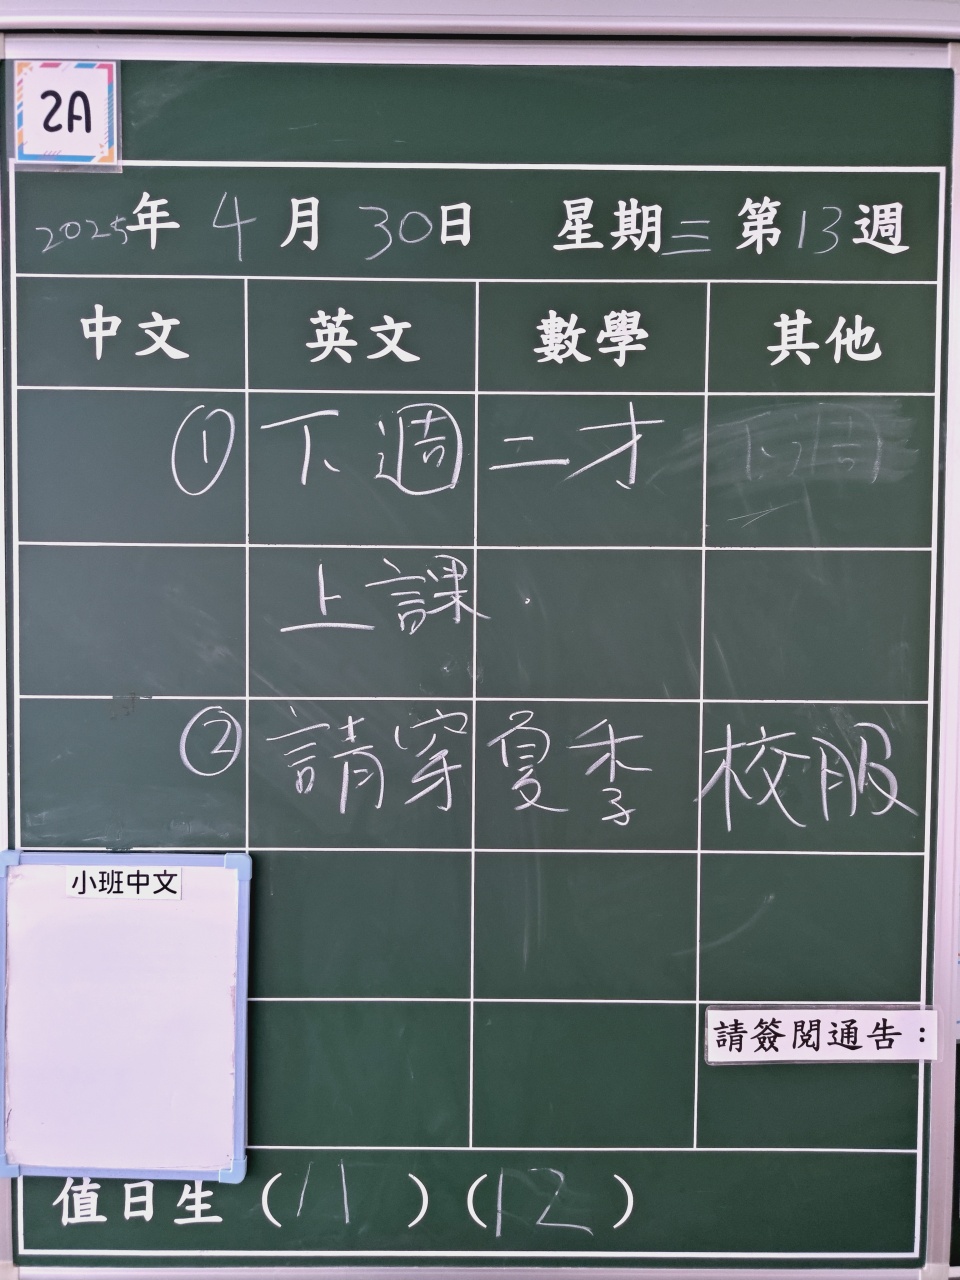 2A
2025年 4月 30日 星期三 第13週
中文 英文 數學 其他
① 下週二才
上課.
② 請穿夏季校服
小班中文
請簽閱通告：
值日生 (11) (12)